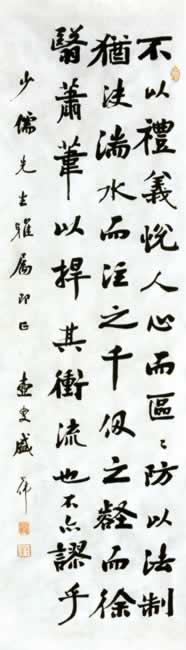 不以禮義悅人心而區〻防以法制
猶決湍水而注之千仞之壑而徐
翳蕭葦以捍其衝流也不亦謬乎
少儒先生雅屬即正 壺叟盛